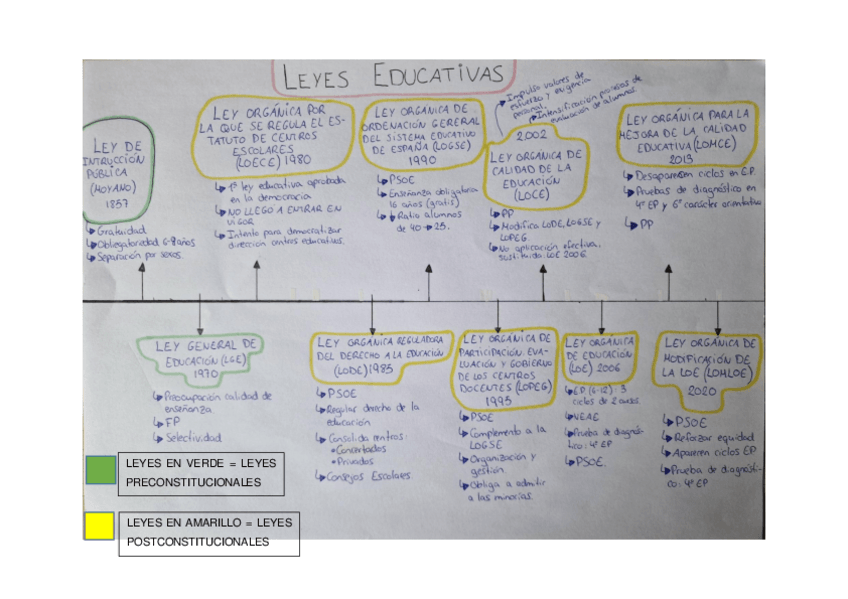 LEYES EDUCATIVAS
LEY DE
INTRUCCIÓN
PÚBLICA
(MOYANO)
1857
Gratuidad
Obligatoriedad 6-9 años
Separación por sexos.
LEY ORGÁNICA POR
LA QUE SE REGULA EL ES-
TATUTO DE CENTROS
ESCOLARES
(LOECE) 1980
1ª ley educativa aprobada
en la democracia
NO LLEGO A ENTRAR EN
VIGOR
Intento para democratizar
dirección centros educativos.
LEY ORGANICA DE
ORDENACIÓN GENERAL
DEL SISTEMA EDUCATIVO
DE ESPAÑA (LOGSE)
1990
PSOE
Enseñanza obligatoria
16 años (gratis)
Ratio alumnos
de 40 → 25.
Impulso valores de
esfuerzo y exigencia
personal.
Intensificación procesos de
evaluación de alumnos.
2.002
LEY ORGÁNICA DE
CALIDAD DE LA
EDUCACIÓN
(LOCE)
PP
Modifica LODE, LOGSE y
LOPEG.
No aplicación efectiva.
sustituida LOE 2006.
LEY ORGÁNICA PARA LA
MEJORA DE LA CALIDAD
EDUCATIVA (LOMCE)
2013
Desaparecen ciclos en E.P.
Pruebas de diagnóstico en
4º EP y 6º carácter orientativo
PP
LEY GENERAL DE
EDUCACIÓN (LGE)
1970
Preocupación calidad de
enseñanza
FP
Selectividad
LEY ORGÁNICA REGULADORA
DEL DERECHO A LA EDUCACIÓN
(LODE) 1985
PSOE
Regular derecho de la
educación
Consolida centros:
Concertados
Privados
Consejos Escolares.
LEY ORGÁNICA DE
PARTICIPACIÓN. EVA-
LUACIÓN Y GOBIERNO
DE LOS CENTROS
DOCENTES (LOPEG)
1995
PSOE
Complemento a la
LOGSE
Organización y
gestión
Obliga a admitir
a las minorías.
LEY ORGÁNICA
DE EDUCACIÓN
(LOE) 2006
E.P (6-12): 3
ciclos de 2 años.
NEAE
Prueba de diagnós-
tico: 4º EP
PSOE.
LEY ORGÁNICA DE
MODIFICACIÓN DE
LA LOE (LOMLOE)
2020
PSOE
Reforzar equidad
Aparecen ciclos EP
Prueba de diagnósti-
co: 4º EP
LEYES EN VERDE = LEYES
PRECONSTITUCIONALES
LEYES EN AMARILLO = LEYES
POSTCONSTITUCIONALES